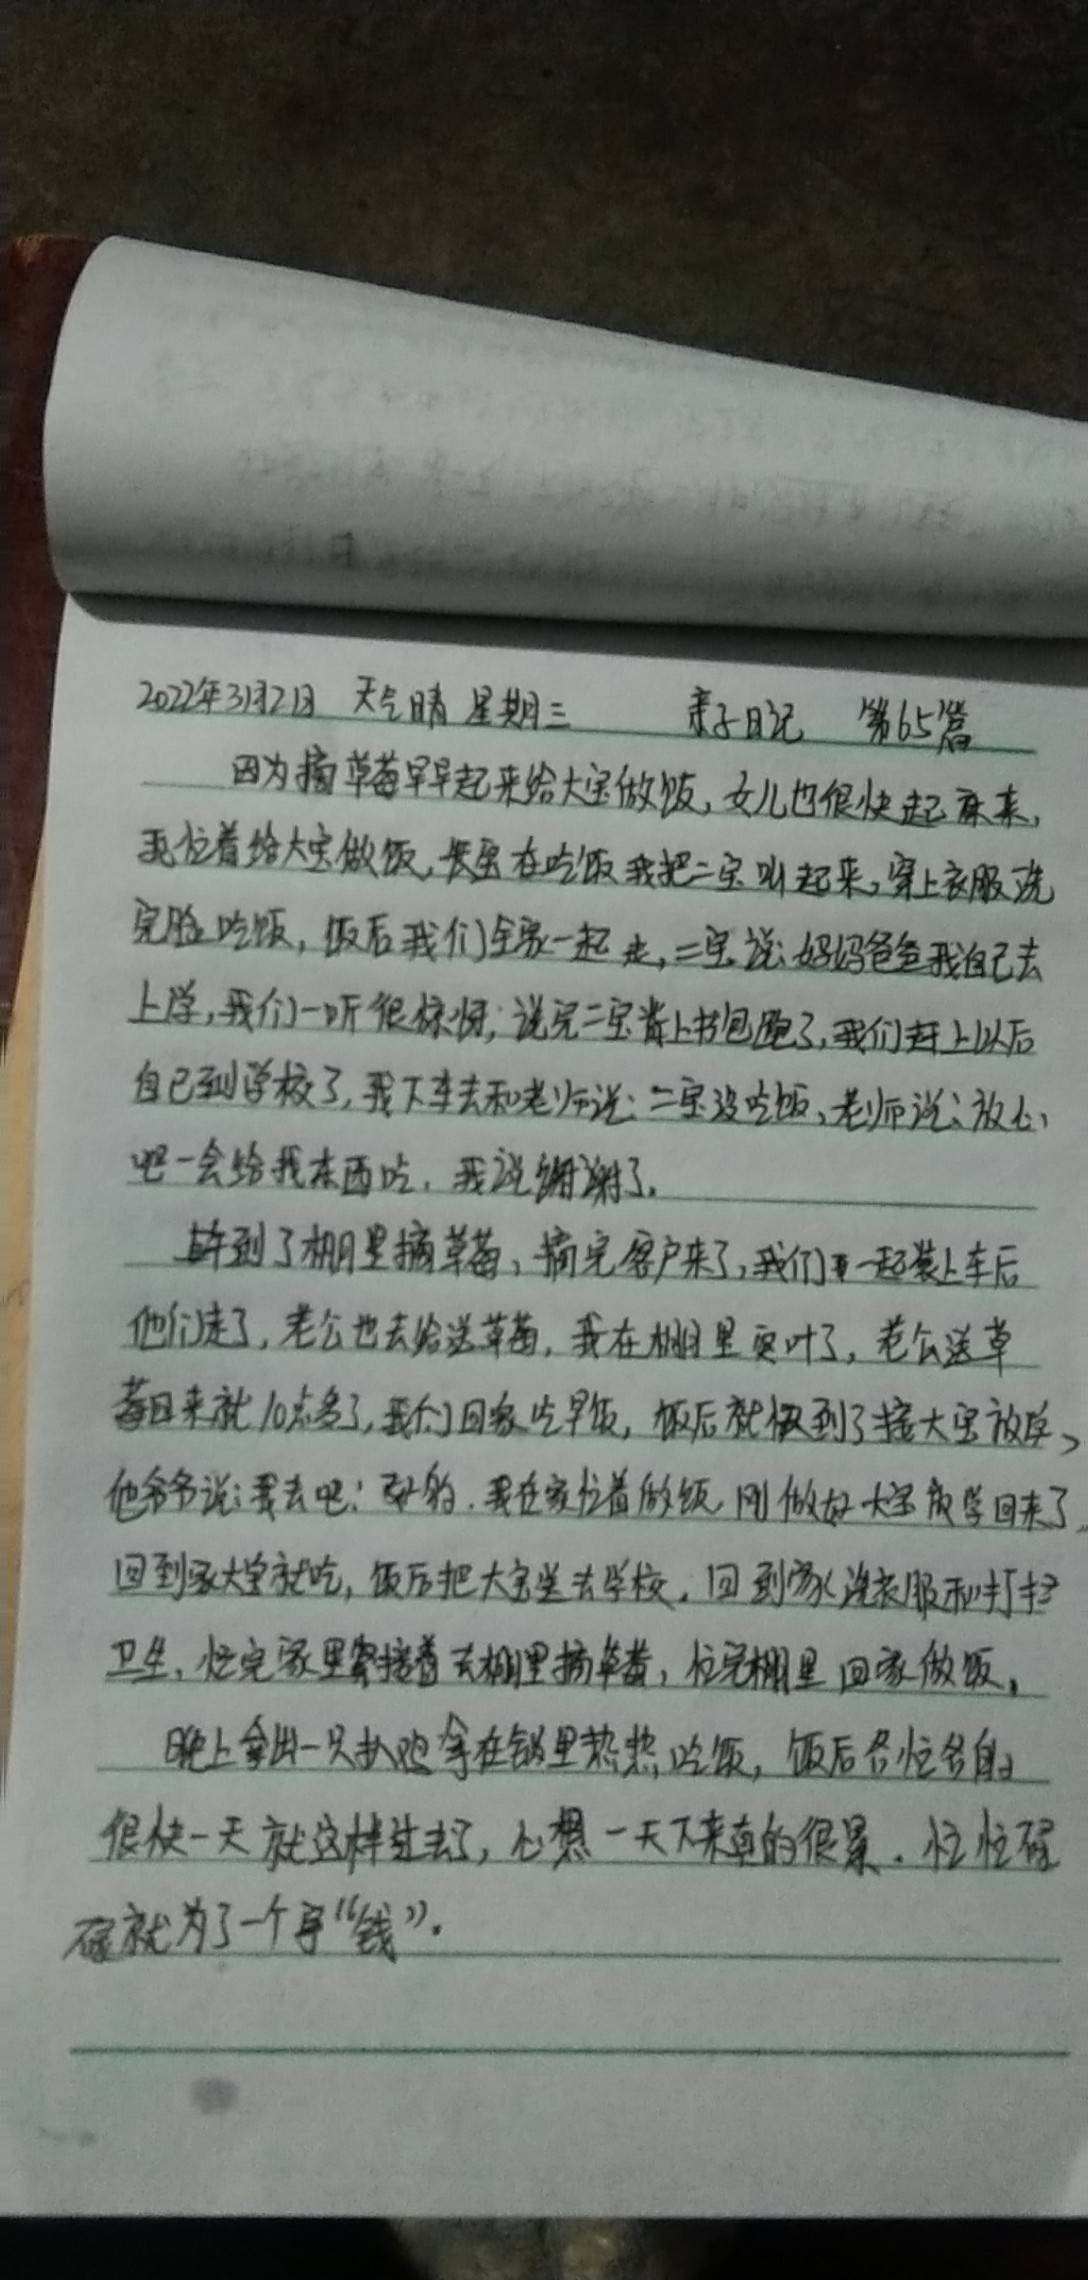 2022年3月2日 天气晴 星期三 亲子日记 第65篇
因为摘草莓早早起来给大宝做饭，女儿也很快起床来，
我忙着给大宝做饭，大宝在吃饭我把二宝叫起来，穿上衣服洗
完脸吃饭，饭后我们全家一起走，二宝说：妈妈爸爸我自己去
上学，我们一听很惊讶，说完二宝背上书包跑了，我们赶上以后
自己到学校了，我下车去和老师说：二宝没吃饭，老师说：放心
吧一会给我东西吃，我说谢谢了。
到了棚里摘草莓，摘完客户来了，我们一起装上车后
他们走了，老公也去给送草莓，我在棚里叶了，老公送草
莓回来就10点多了，我们回家吃早饭，饭后就到了接大宝放学，
他爷爷说：我去吧！好的．我在家忙着做饭 刚做好大宝放学回来了，
回到家大宝就吃，饭后把大宝送去学校．回到家洗衣服和打扫
卫生，忙完家里紧接着去棚里摘草莓，忙完棚里回家做饭。
晚上拿出一只扒鸡拿在锅里热热吃饭，饭后各忙各自
很快一天就这样过去了，心想一天下来真的很累．忙忙碌
碌就为了一个字“钱”．